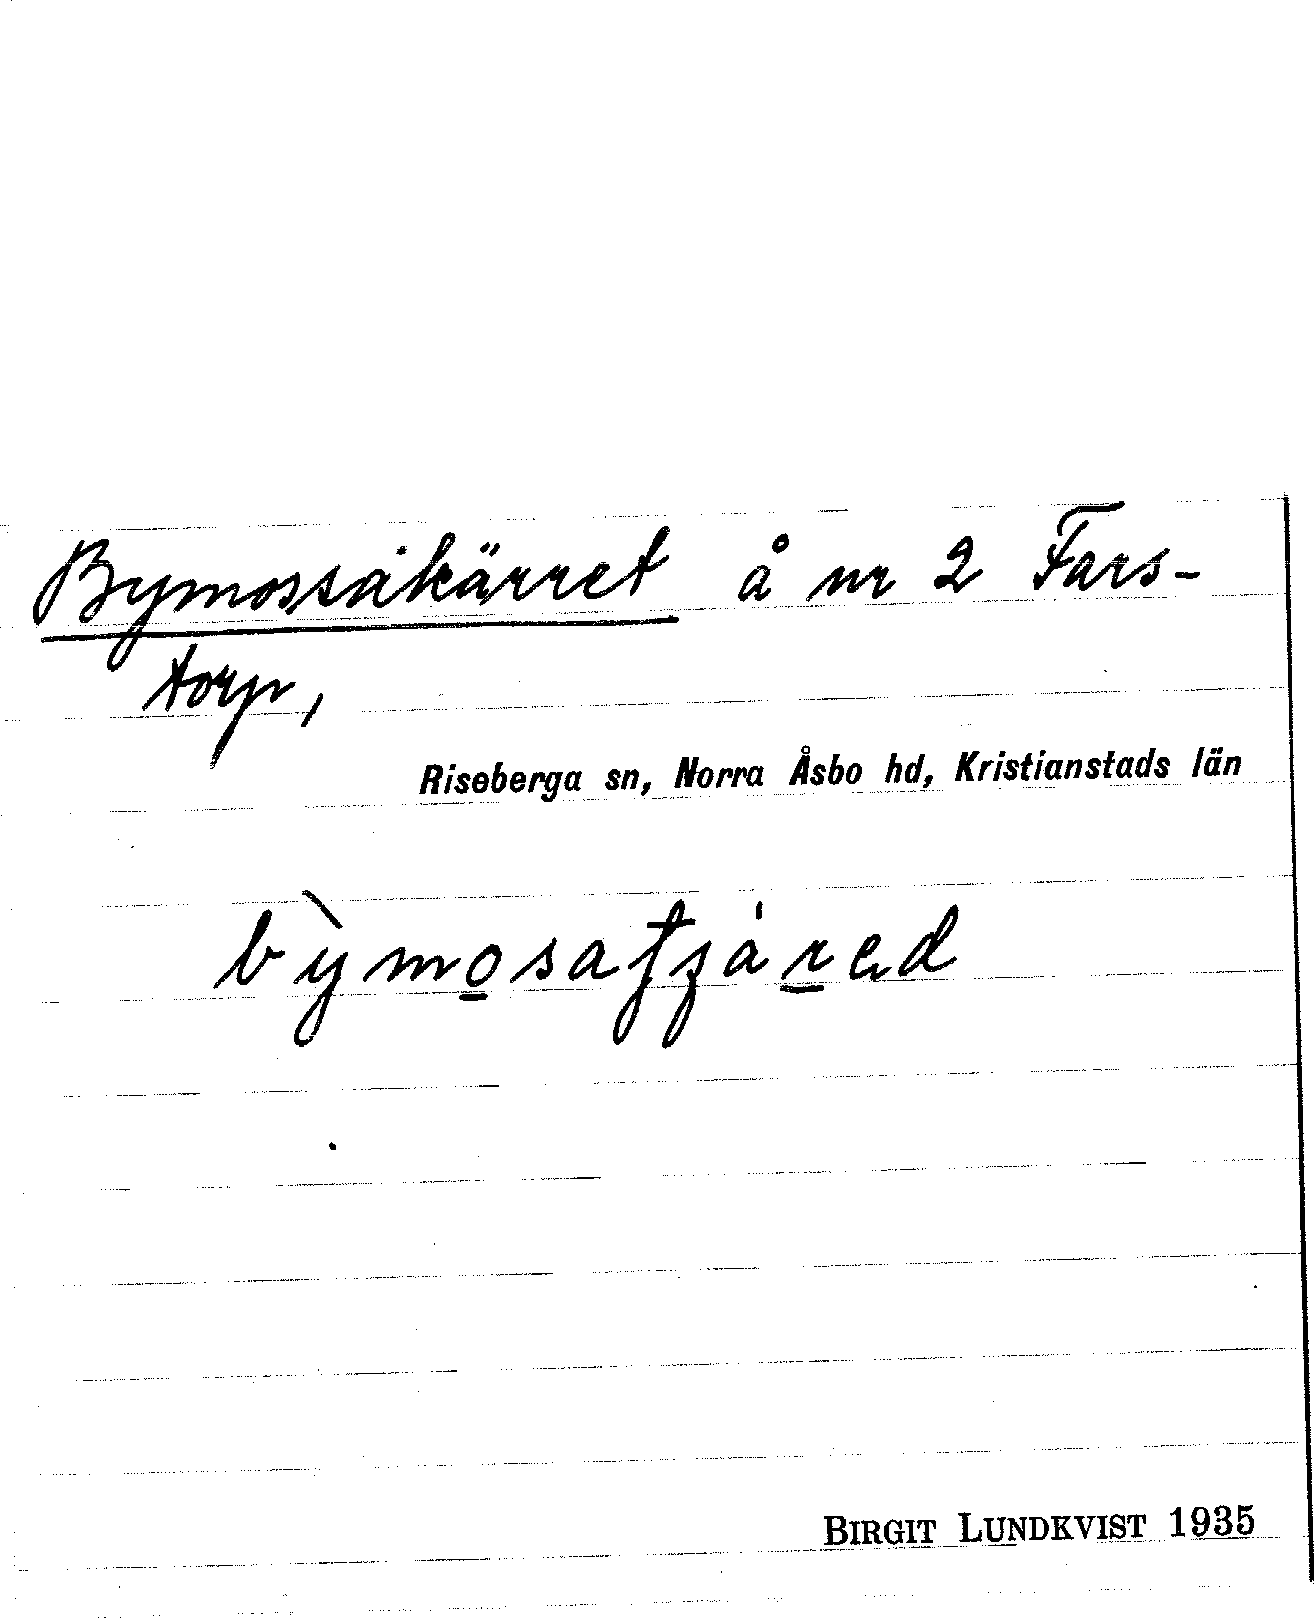 Bymossakärret å nr 2 Fars-
torp,
Riseberga sn, Norra Åsbo hd, Kristianstads län
bỳmosatjáred
BIRGIT LUNDKVIST 1935